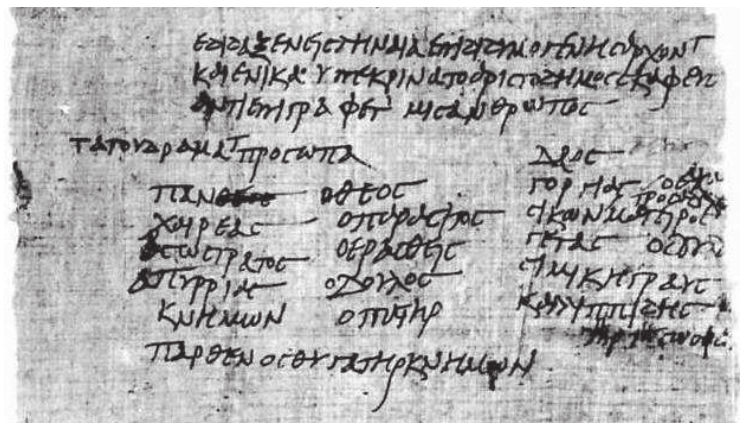 ΕΔΙΔΑΞΕΝΕΙϹΤΗΝΑΙΑΕΠΙΔΙΔΗΜΟΓΕΝΗϹΑΡΧΟΝΤ
ΚΑΙΕΝΙΚΑ ΥΠΕΚΡΙΝΑΤΟΑΡΙϹΤΟΔΗΜΟϹϹΚΑΦΕΥϹ
ΑΝΤΕΠΙΓΡΑΦΕΤ ΜΙϹΑΝΘΡΩΠΟϹ
ΤΑΤΟΥΔΡΑΜΑΤ ΠΡΟϹΩΠΑ
ΠΑΝ ΟΘΕΟϹ
ΧΑΙΡΕΑϹ ΟΠΑΡΑϹΙΤΟϹ
ϹΩϹΤΡΑΤΟϹ ΟΕΡΑϹΘΕΙϹ
ΠΥΡΡΙΑϹ ΟΔΟΥΛΟϹ
ΚΝΗΜΩΝ ΟΠΑΤΗΡ
ΠΑΡΘΕΝΟϹΘΥΓΑΤΗΡΚΝΗΜΩΝ
ΔΑΟϹ
ΓΟΡΓΙΑϹ
ϹΙΚΩΝΜΑΓΕΙΡΟϹ
ΓΕΤΑϹ
ϹΙΜΙΚΗΓΡΑΥϹ
ΚΑΛΛΙΠΠΙΔΗϹ